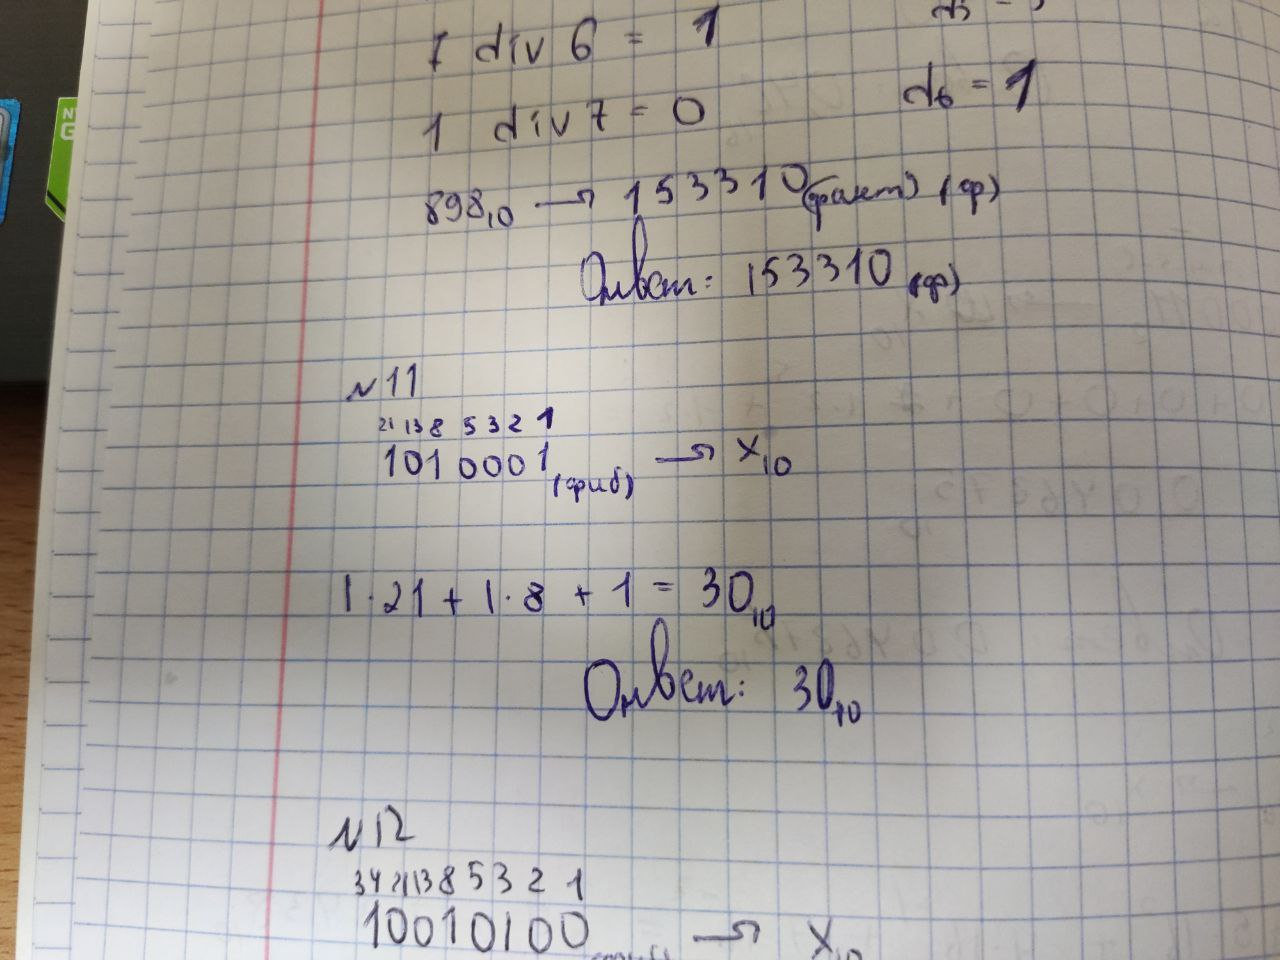 7 div 6 = 1
1 div 7 = 0 d₆ = 1
898₁₀ → 153310(факт) (ф)
Ответ: 153310 (ф)
№11
21 13 8 5 3 2 1
1010001(фиб) → X₁₀
1·21 + 1·8 + 1 = 30₁₀
Ответ: 30₁₀
№12
34 21 13 8 5 3 2 1
10010100 → X₁₀